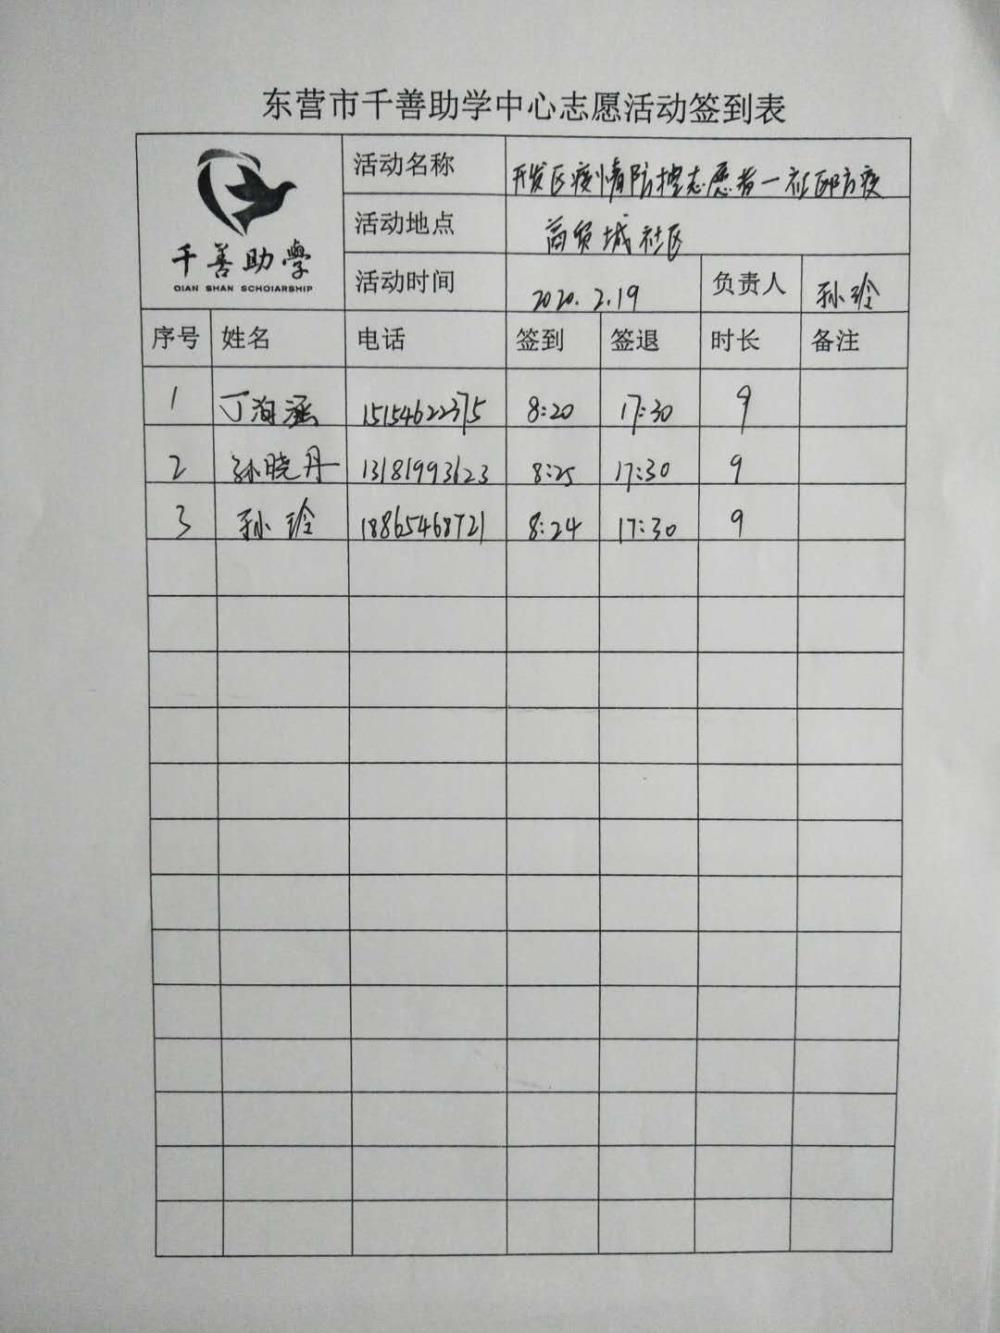 东营市千善助学中心志愿活动签到表
千善助學
QIAN SHAN SCHOIARSHIP
活动名称 开发区疫情防控志愿者一社区防疫
活动地点 商贸城社区
活动时间 2020.2.19 负责人 孙玲
序号 姓名 电话 签到 签退 时长 备注
1 丁海涵 15154622375 8:20 17:30 9
2 孙晓丹 13181993123 8:25 17:30 9
3 孙玲 18865468721 8:24 17:30 9